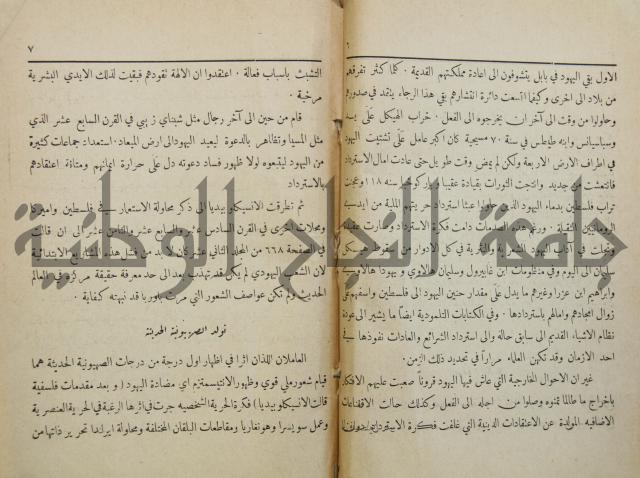 الاول بقي اليهود في بابل يتشوفون الى اعادة مملكتهم القديمة . كما كثر تفرقهم
من بلاد الى اخرى وكيفما اتسعت دائرة انتشارهم بقي هذا الرجاء يتقد في صدورهم
وحاولوا من وقت الى آخر ان يخرجوه الى الفعل . خراب الهيكل على يد
وسباسيانس وابنه طيطس في سنة ٧٠ مسيحية كان اكبر عامل على تشتيت اليهود
في اطراف الارض الاربعة ولكن لم يمض وقت طويل حتى عادت آمال الاسترداد
فانتعشت من جديد وانتجت الثورات بقيادة عقيبا وباركوخبا سنة ١١٨
تراب فلسطين بدماء اليهود الذين حاولوا عبثا استرداد حريتهم الملية من ايدي
الرومانيين الثقيلة . ورغم هذه الصدمات دامت فكرة الاسترداد وصارت عقيدة
وتجلت في آداب اليهود الشعرية والنثرية في كل الادوار من سقوط هيكل
سليمان الى اليوم وفي منظومات ابن غابيرول وسليمان هالاوي و يهودا هالاوي
وابراهيم ابن عزرا وغيرهم ما يدل على مقدار حنين اليهود الى فلسطين واسفهم على
زوال امجادهم وآمالهم باستردادها . وفي الكتابات التلمودية ايضا ما يشير الى عودة
نظام الاشياء القديم الى سابق حاله والى استرداد الشرائع والعادات نفوذها في
احد الازمان وقد تكهن العلماء مراراً في تحديد ذلك الزمن .
غير ان الاحوال الخارجية التي عاش فيها اليهود قروناً صعبت عليهم الافتكار
باخراج ما طالما تمنوه وصلوا من اجله الى الفعل وكذلك حالت الاقناعات
الاضافية المولدة عن الاعتقادات الدينية التي غلفت فكرة الاسترداد دون
٧
التشبث باسباب فعالة . اعتقدوا ان الالهة تقودهم فبقيت لذلك الايدي البشرية
مرتخية .
قام من حين الى آخر رجال مثل شبتاي ز بي في القرن السابع عشر الذي
مثل المسيا وتظاهر بالدعوة ليعيد اليهود الى ارض الميعاد . استعداد جماعات كثيرة
من اليهود ليتبعوه لولا ظهور فساد دعوته دل على حرارة ايمانهم ومتانة اعتقادهم
بالاسترداد
ثم تطرقت الانسيكلوبيديا الى ذكر محاولة الاستعمار في فلسطين واميركا
ومحلات اخرى في القرن السادس عشر والسابع عشر والثامن عشر الى ان قالت
في الصفحة ٦٦٨ من المجلد الثاني عشر كان لا بد من فشل هذه المشاريع الابتدائية
لان الشعب اليهودي لم يكن قد تهذب بعد الى حد معرفة حقيقة مركزه في العالم
الحديث ولم تكن عواصف الشعور التي مرت باوربا قد نبهته كفاية .
تولد الصهيونية الحديثة
العاملان اللذان اثرا في اظهار اول درجة من درجات الصهيونية الحديثة هما
قيام شعور ملي قوي وظهور الانتيسمتيزم اي مضادة اليهود ( و بعد مقدمات فلسفية
قالت الانسيكلوبيديا ) فكرة الحرية الشخصية جرت في اثرها الرغبة في الحرية العنصرية
وعمل سويسرا وهونغاريا ومقاطعات البلقان المختلفة ومحاولة ايرلندا تحرير ذاتها من
جامعة النجاح الوطنية